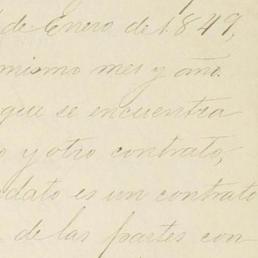 de Enero de 1849,
mismo mes y año.
que se encuentra
o y otro contrato,
dato es un contrato
de las partes con